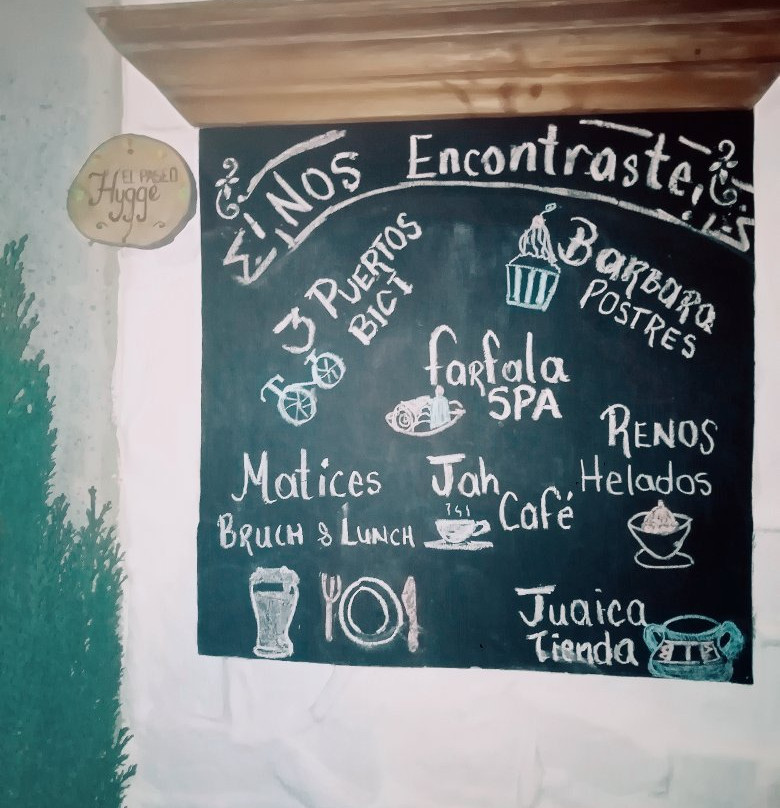 EL PASEO
Hygge
¡NOS Encontraste!
3 PUERTOS
BICI
BARBARA
POSTRES
farfala
SPA
RENOS
Helados
Matices
BRUCH & LUNCH
Jah
Café
Juaica
Tienda